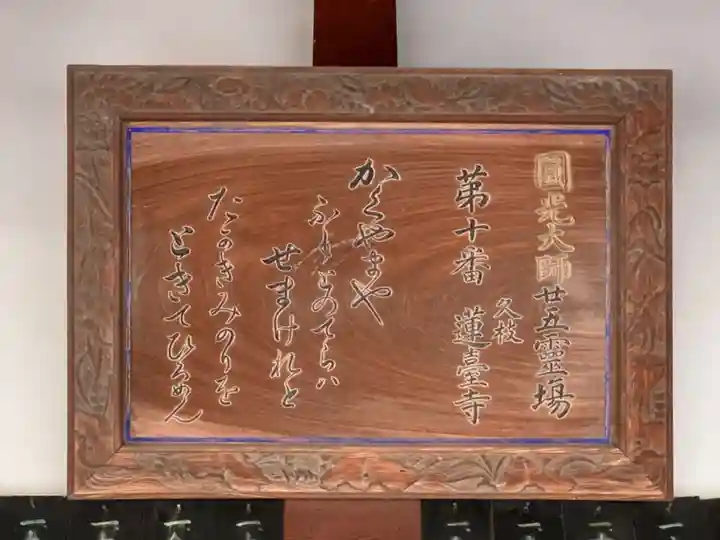 圓光大師廿五靈塲
久枝
第十番 蓮臺寺
かくやまや
ふもとのてらハ
せまけれと
たかきみのりを
ときてひろめん